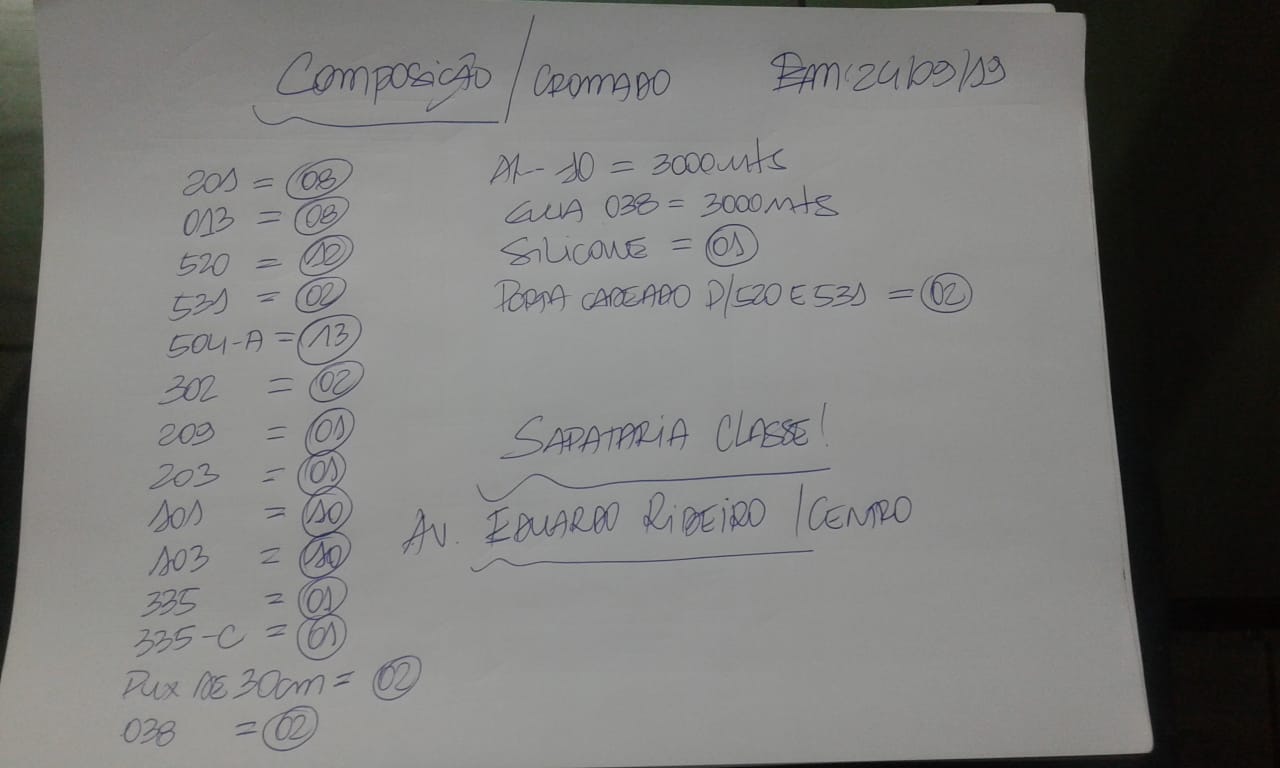 Composição / CROMADO EM: 24/09/19
201 = 08
013 = 08
520 = 12
531 = 02
504-A = 13
302 = 02
209 = 01
203 = 01
101 = 10
103 = 10
335 = 01
335-C = 01
Pux DE 30cm = 02
038 = 02
AL-10 = 3000mts
GUIA 038 = 3000mts
SiliCONE = 01
PORTA CADEADO P/520 E 531 = 02
SAPATARIA CLASSE!
AV. EDUARDO RIBEIRO / CENTRO